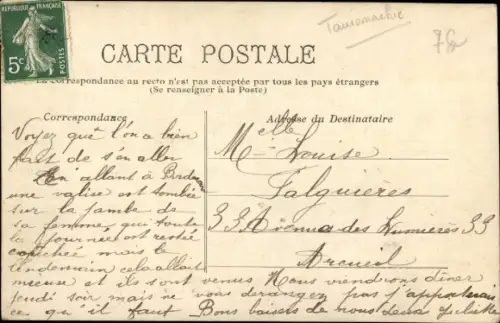 REPUBLIQUE FRANÇAISE
5c
POSTES
Tauromachie
76
CARTE POSTALE
La correspondance au recto n'est pas acceptée par tous les pays étrangers
(Se renseigner à la Poste)
Correspondance
Adresse du Destinataire
Voyez que l'on a bien
fait de s'en aller
En allant à
une valise est tombée
sur la jambe de
sa femme, qui toute
la journée est restée
couchée mais le
lendemain cela allait
mieux et ils sont venus Nous viendrons dîner
jeudi soir mais ne vous dérangez pas j'apporterai
ce qu'il faut Bons baisers de nous deux
Melle Louise
Falguières
33 Avenue des Lumières 33
Arcueil